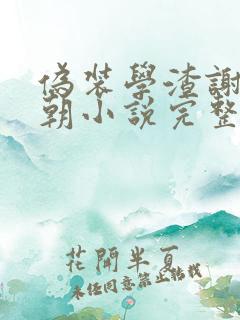 偽裝學渣謝
朝小說完整
花開半夏
未經同意禁止轉載